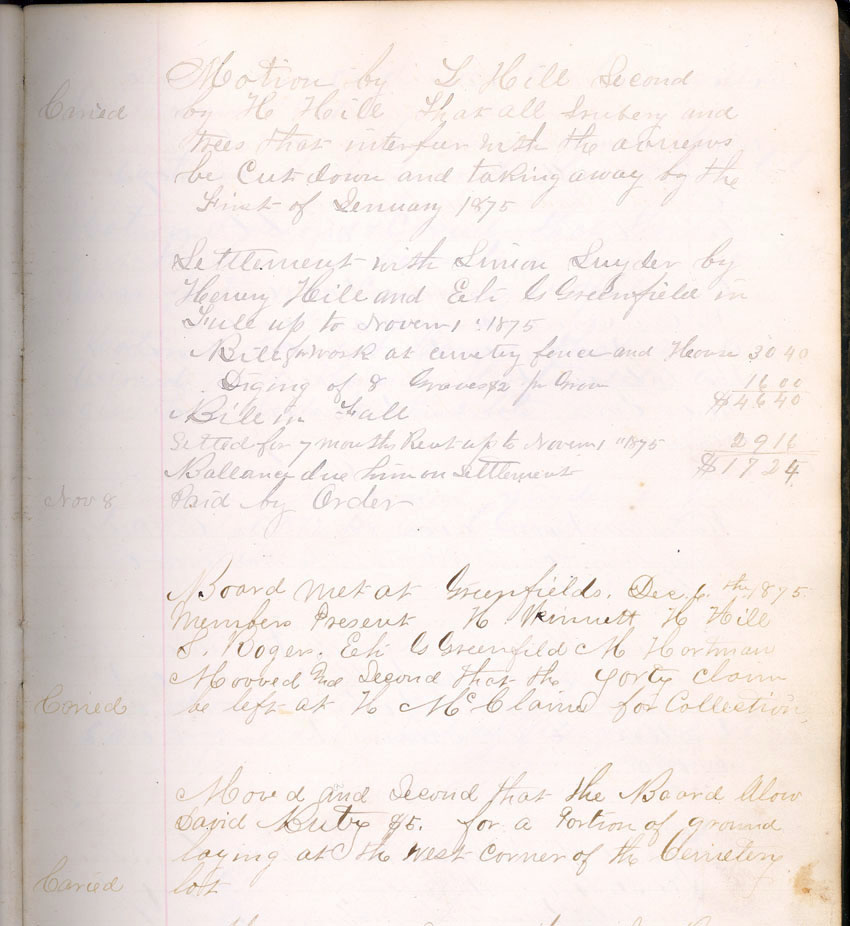 Motion by L Hill Second
Carried by H Hill that all Srubery and
trees that interfier with the
be Cut down and taking away by the
First of Jenuary 1875
Settlement with Simon Snyder by
Henry Hill and Eli G Greenfield in
Full up to Novem 1 1875
Bill for work at cemetry fence and House 30 40
Diging of 8 Graves $2 pr Grave 16 00
Bill in Full $46 40
Setled for 7 months Rent up to Novem 1 " 1875 29 16
Ballance due him on Settlement $17 24
Nov 8 Paid by Order
Board met at Greenfields. Dec 6th 1875
Members Present H Kinnett H Hill
S. Roger. Eli G Greenfild M Hortman
Mooved and Second that the claim
Carried be left at H McClains for Collection
Moved and Second that the Board Alow
David $5. for a Portion of ground
laying at the west corner of the Cemetery
Caried lott